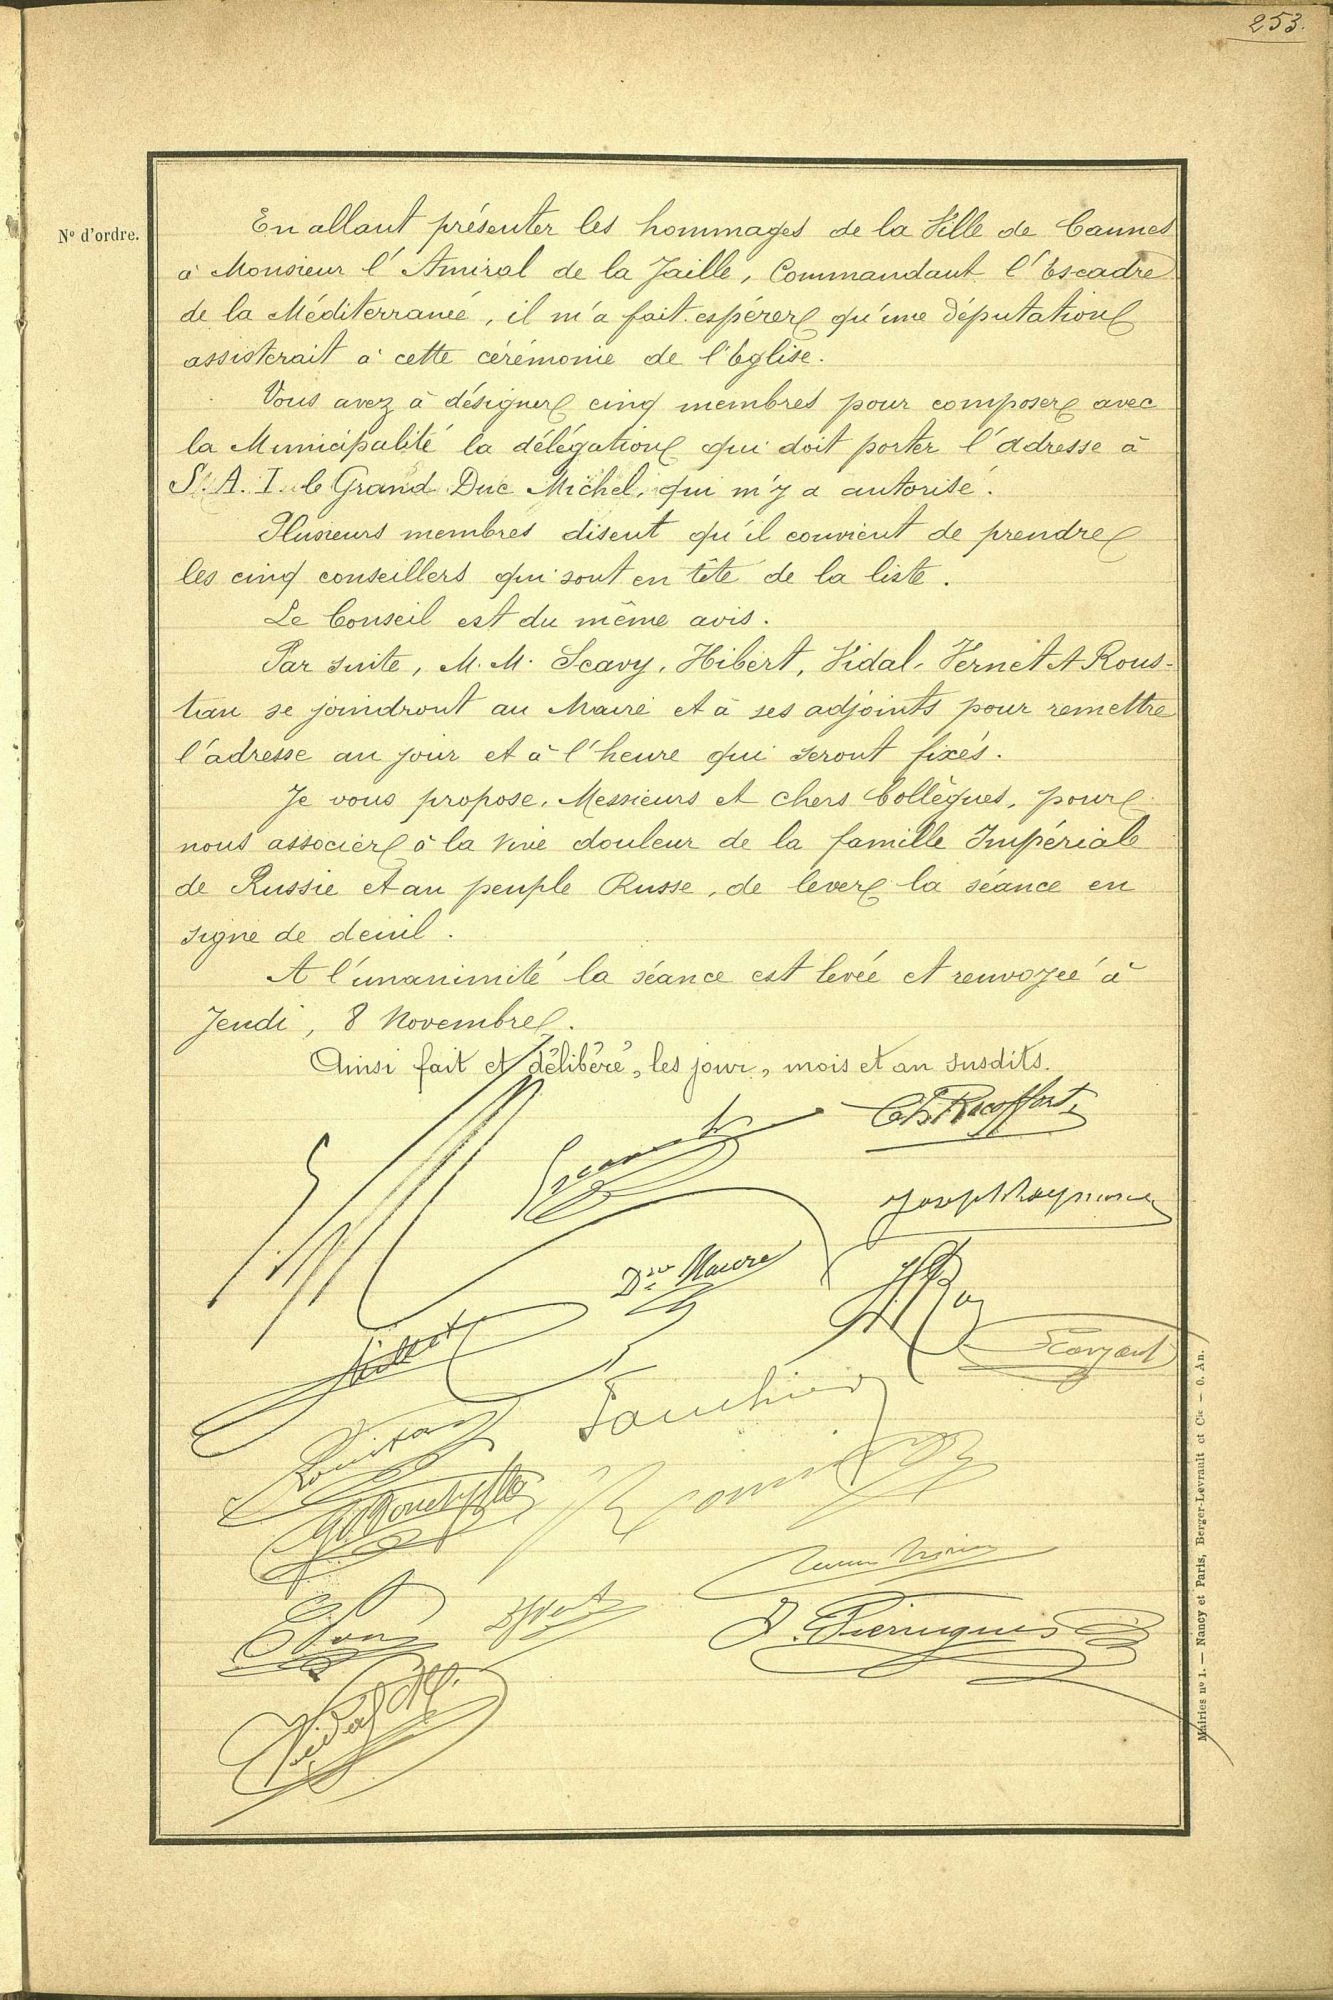 253.
N° d'ordre.
En allant présenter les hommages de la Ville de Cannes
à Monsieur l'Amiral de la Jaille, Commandant l'Escadre
de la Méditerranée, il m'a fait espérer qu'une députation
assisterait à cette cérémonie de l'Eglise.
Vous avez à désigner cinq membres pour composer avec
la Municipalité la délégation qui doit porter l'adresse à
S. A. I. le Grand Duc Michel, qui m'y a autorisé.
Plusieurs membres disent qu'il convient de prendre
les cinq conseillers qui sont en tête de la liste.
Le Conseil est du même avis.
Par suite, M.M. Scavy, Hibert, Vidal, Vernet et Rous-
tan se joindront au Maire et à ses adjoints pour remettre
l'adresse au jour et à l'heure qui seront fixés.
Je vous propose, Messieurs et chers Collègues, pour
nous associer à la vive douleur de la famille Impériale
de Russie et au peuple Russe, de lever la séance en
signe de deuil.
A l'unanimité la séance est levée et renvoyée à
Jeudi, 8 Novembre.
Ainsi fait et délibéré, les jour, mois et an susdits.
Ch. Ricoffort
Joseph Raymond
Dr Maure
Hibert
Fauchier
Roustan
D. Pierrugues
Vidal
Mairies n° 1. — Nancy et Paris, Berger-Levrault et Cie — O. An.